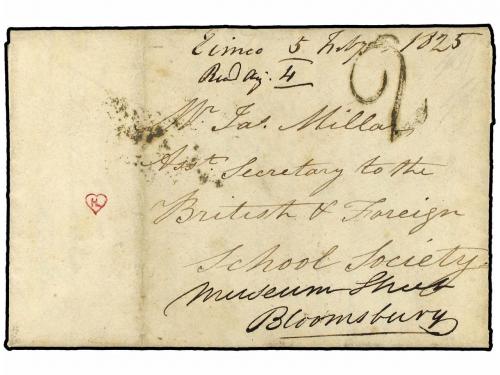 Eimeo 5 Feby 1825
Recd Aug. 4
2
Mr. Jas. Millar
Asst. Secretary to the
British & Foreign
School Society
Museum Street
Bloomsbury